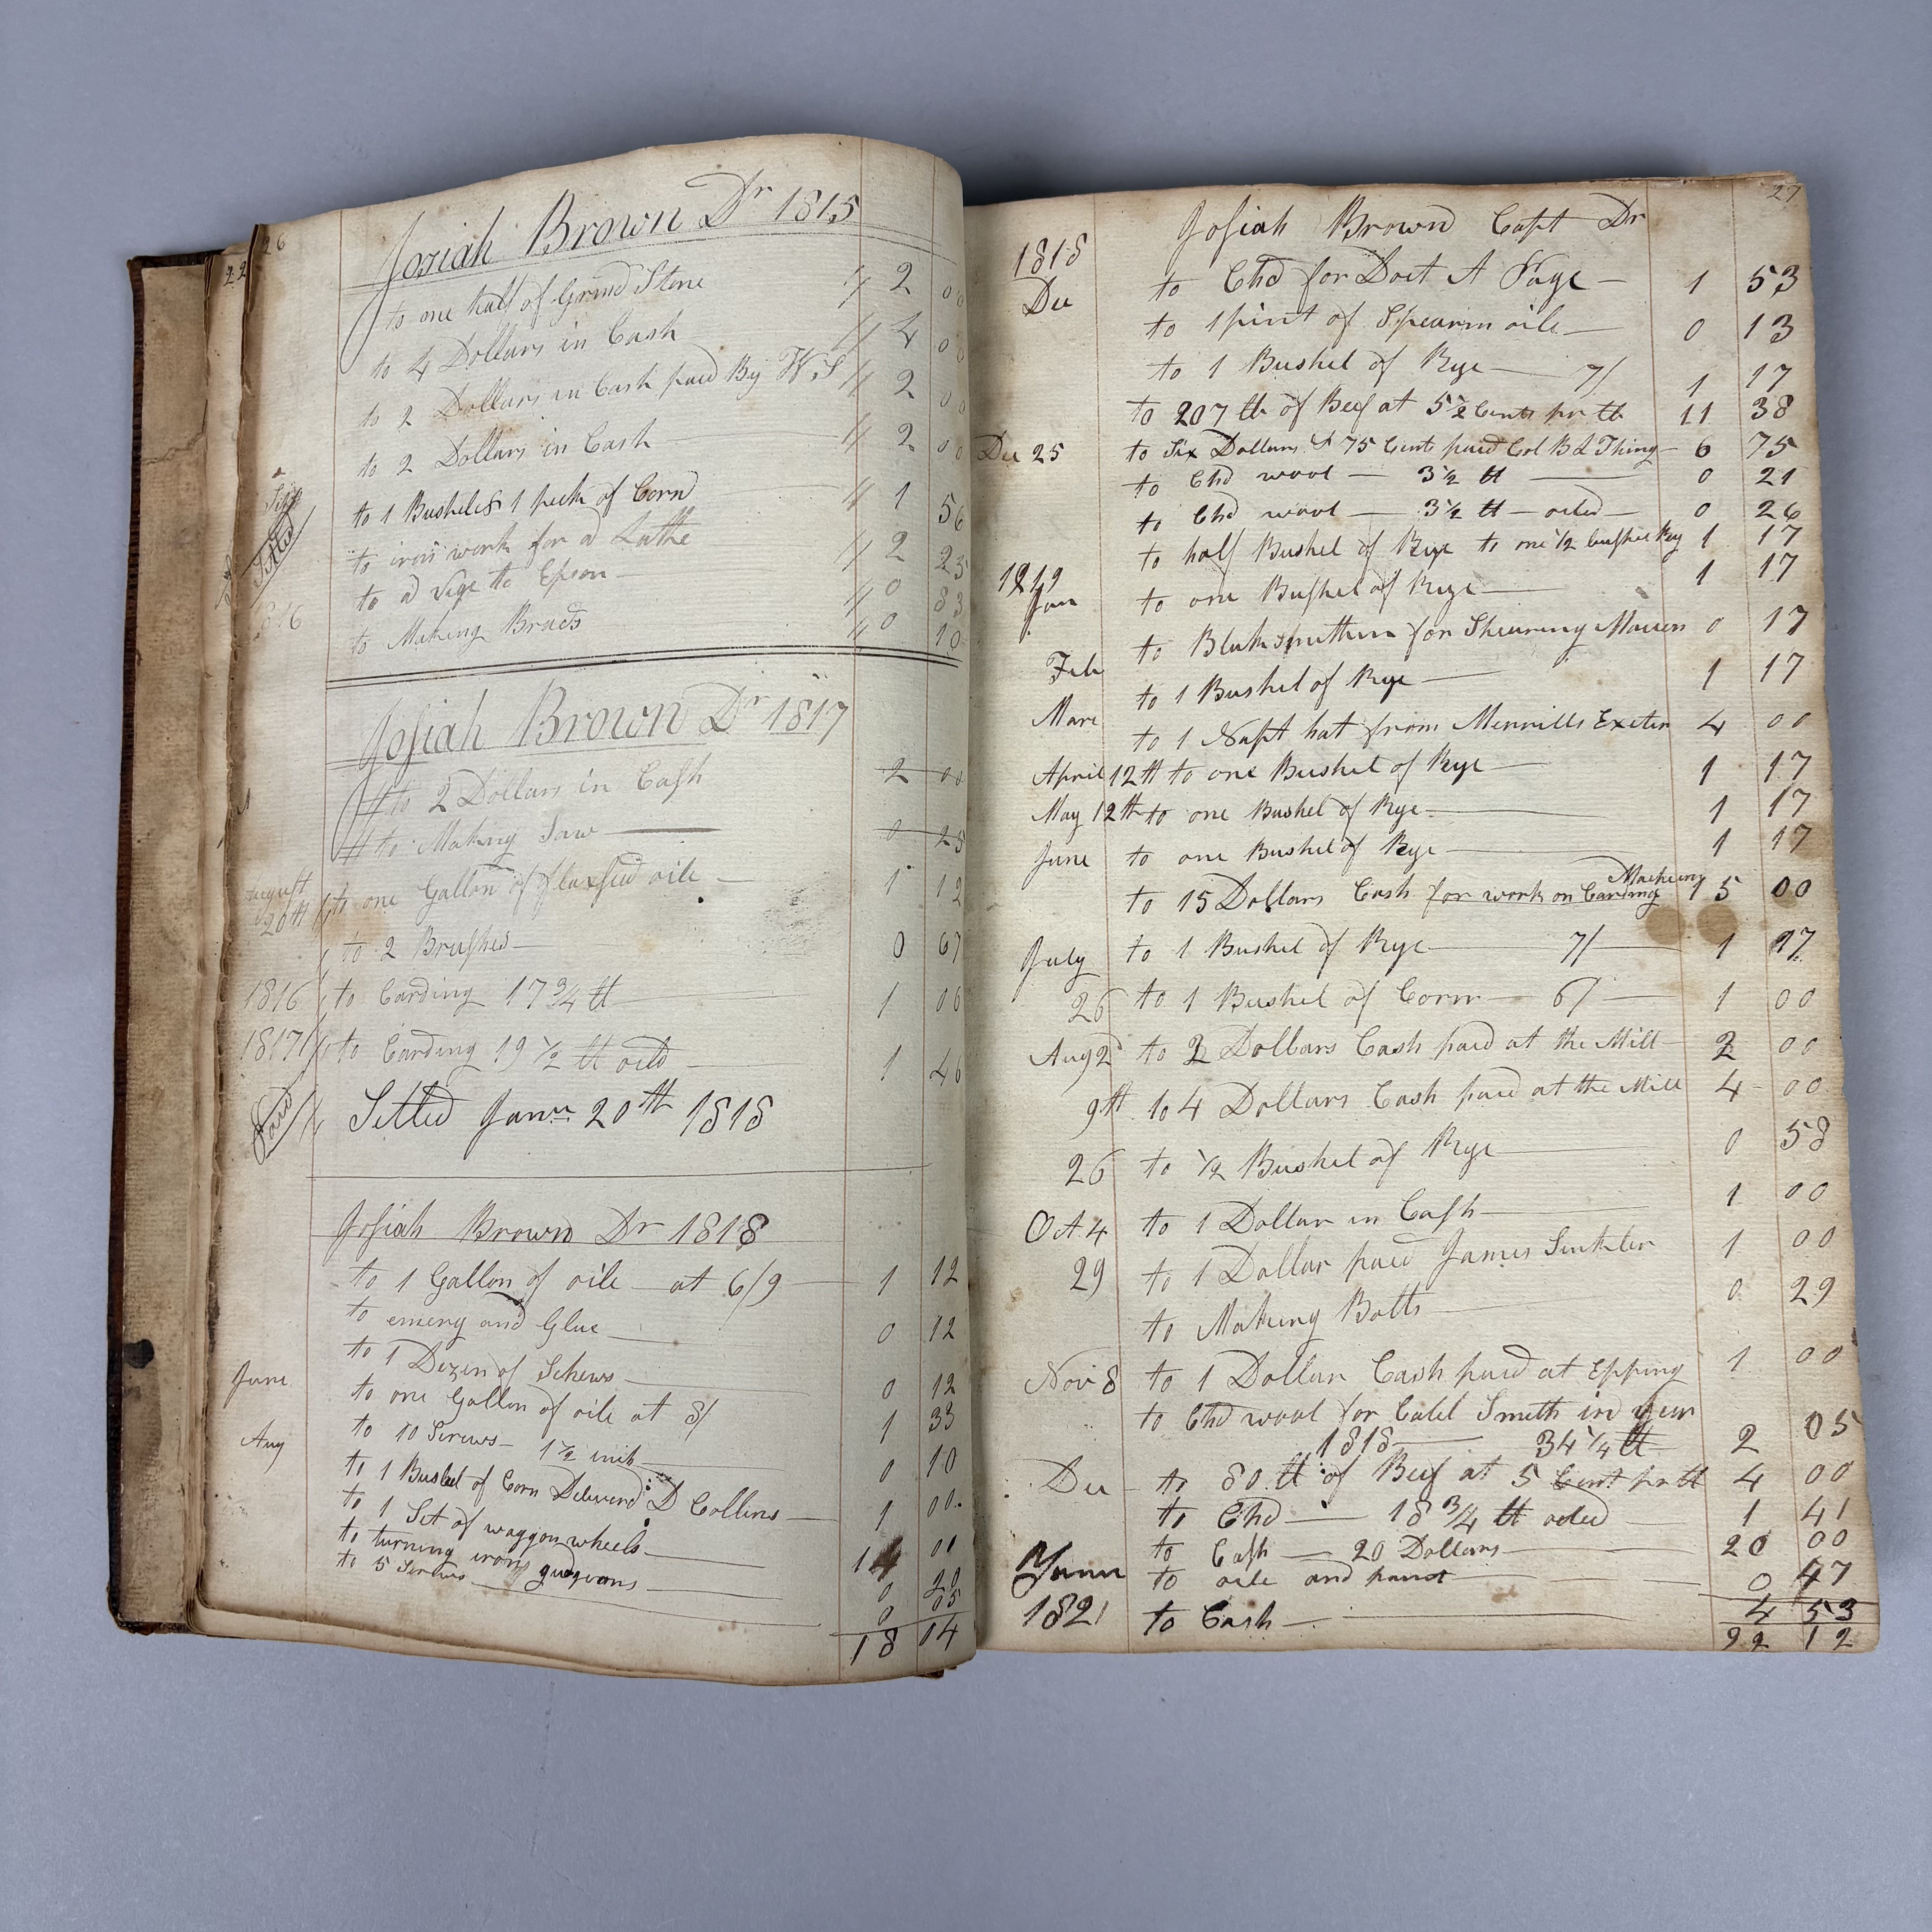 26
Josiah Brown Dr 1815
to one half of Grind Stone 2 00
to 4 Dollars in Cash 4 00
to 2 Dollars in Cash paid By W.S 2 00
to 2 Dollars in Cash 2 00
to 1 Bushel & 1 peck of Corn 1 56
Settled
to iron work for a Lathe 2 25
to a vige to Epson 0 83
1816
to Making Brads 0 10
Josiah Brown Dr 1817
to 2 Dollars in Cash 2 00
to Making Saw 0 25
August 20th to one Gallon of flaxseed oile 1 12
to 2 Brushes 0 67
1816 to Carding 17 3/4 lb 1 06
1817 to Carding 19 1/2 lb oild 1 46
Setled Janu 20th 1818
Josiah Brown Dr 1818
to 1 Gallon of oile at 6/9 1 12
to emery and Glue 0 12
to 1 Dozen of Schews 0 12
June to one Gallon of oile at 8/ 1 33
to 10 Screws 1 1/2 inch 0 10
Aug to 1 Bushel of Corn Deliverd D Collins 1 00
to 1 Set of waggon wheels 14 00
to turning irons gudgeons 0 20
to 5 Screws 0 05
18 04
27
Josiah Brown Capt Dr
1818
Dec to Chd for Doct A 1 53
to 1 pint of Spearm oile 0 13
to 1 Bushel of Rye 7/ 1 17
to 207 lb of Beef at 5 1/2 Cents pr lb 11 38
Dec 25 to Six Dollars & 75 Cents paid Col B L Thing 6 75
to Chd wool 3 1/2 lb 0 21
to Chd wool 3 1/2 lb oiled 0 26
to half Bushel of Rye to one 1/2 bushel Rey 1 17
1819
Jan to one Bushel of Rye 1 17
to for Shearing 0 17
Feb to 1 Bushel of Rye 1 17
Marc to 1 Napt hat from Merrills Exeter 4 00
April 12th to one Bushel of Rye 1 17
May 12th to one Bushel of Rye 1 17
June to one Bushel of Rye 1 17
to 15 Dollars Cash for work on Carding Macheny 15 00
July to 1 Bushel of Rye 7/ 1 17
26 to 1 Bushel of Corn 6/ 1 00
Aug 2d to 2 Dollars Cash paid at the Mill 2 00
9th to 4 Dollars Cash paid at the Mill 4 00
26 to 1/2 Bushel of Rye 0 58
Oct 4 to 1 Dollar in Cash 1 00
29 to 1 Dollar paid James Sinkler 1 00
to Making Bolts 0 29
Nov 8 to 1 Dollar Cash paid at Epping 1 00
to Chd wool for Calel Smith in year
1818 34 1/4 lb 2 05
Dec to 80 lb of Beef at 5 Cent pr lb 4 00
to Chd 18 3/4 lb oiled 1 41
to Cash 20 Dollars 20 00
Janu to oile and paint 0 47
1821 to Cash 4 53
92 12